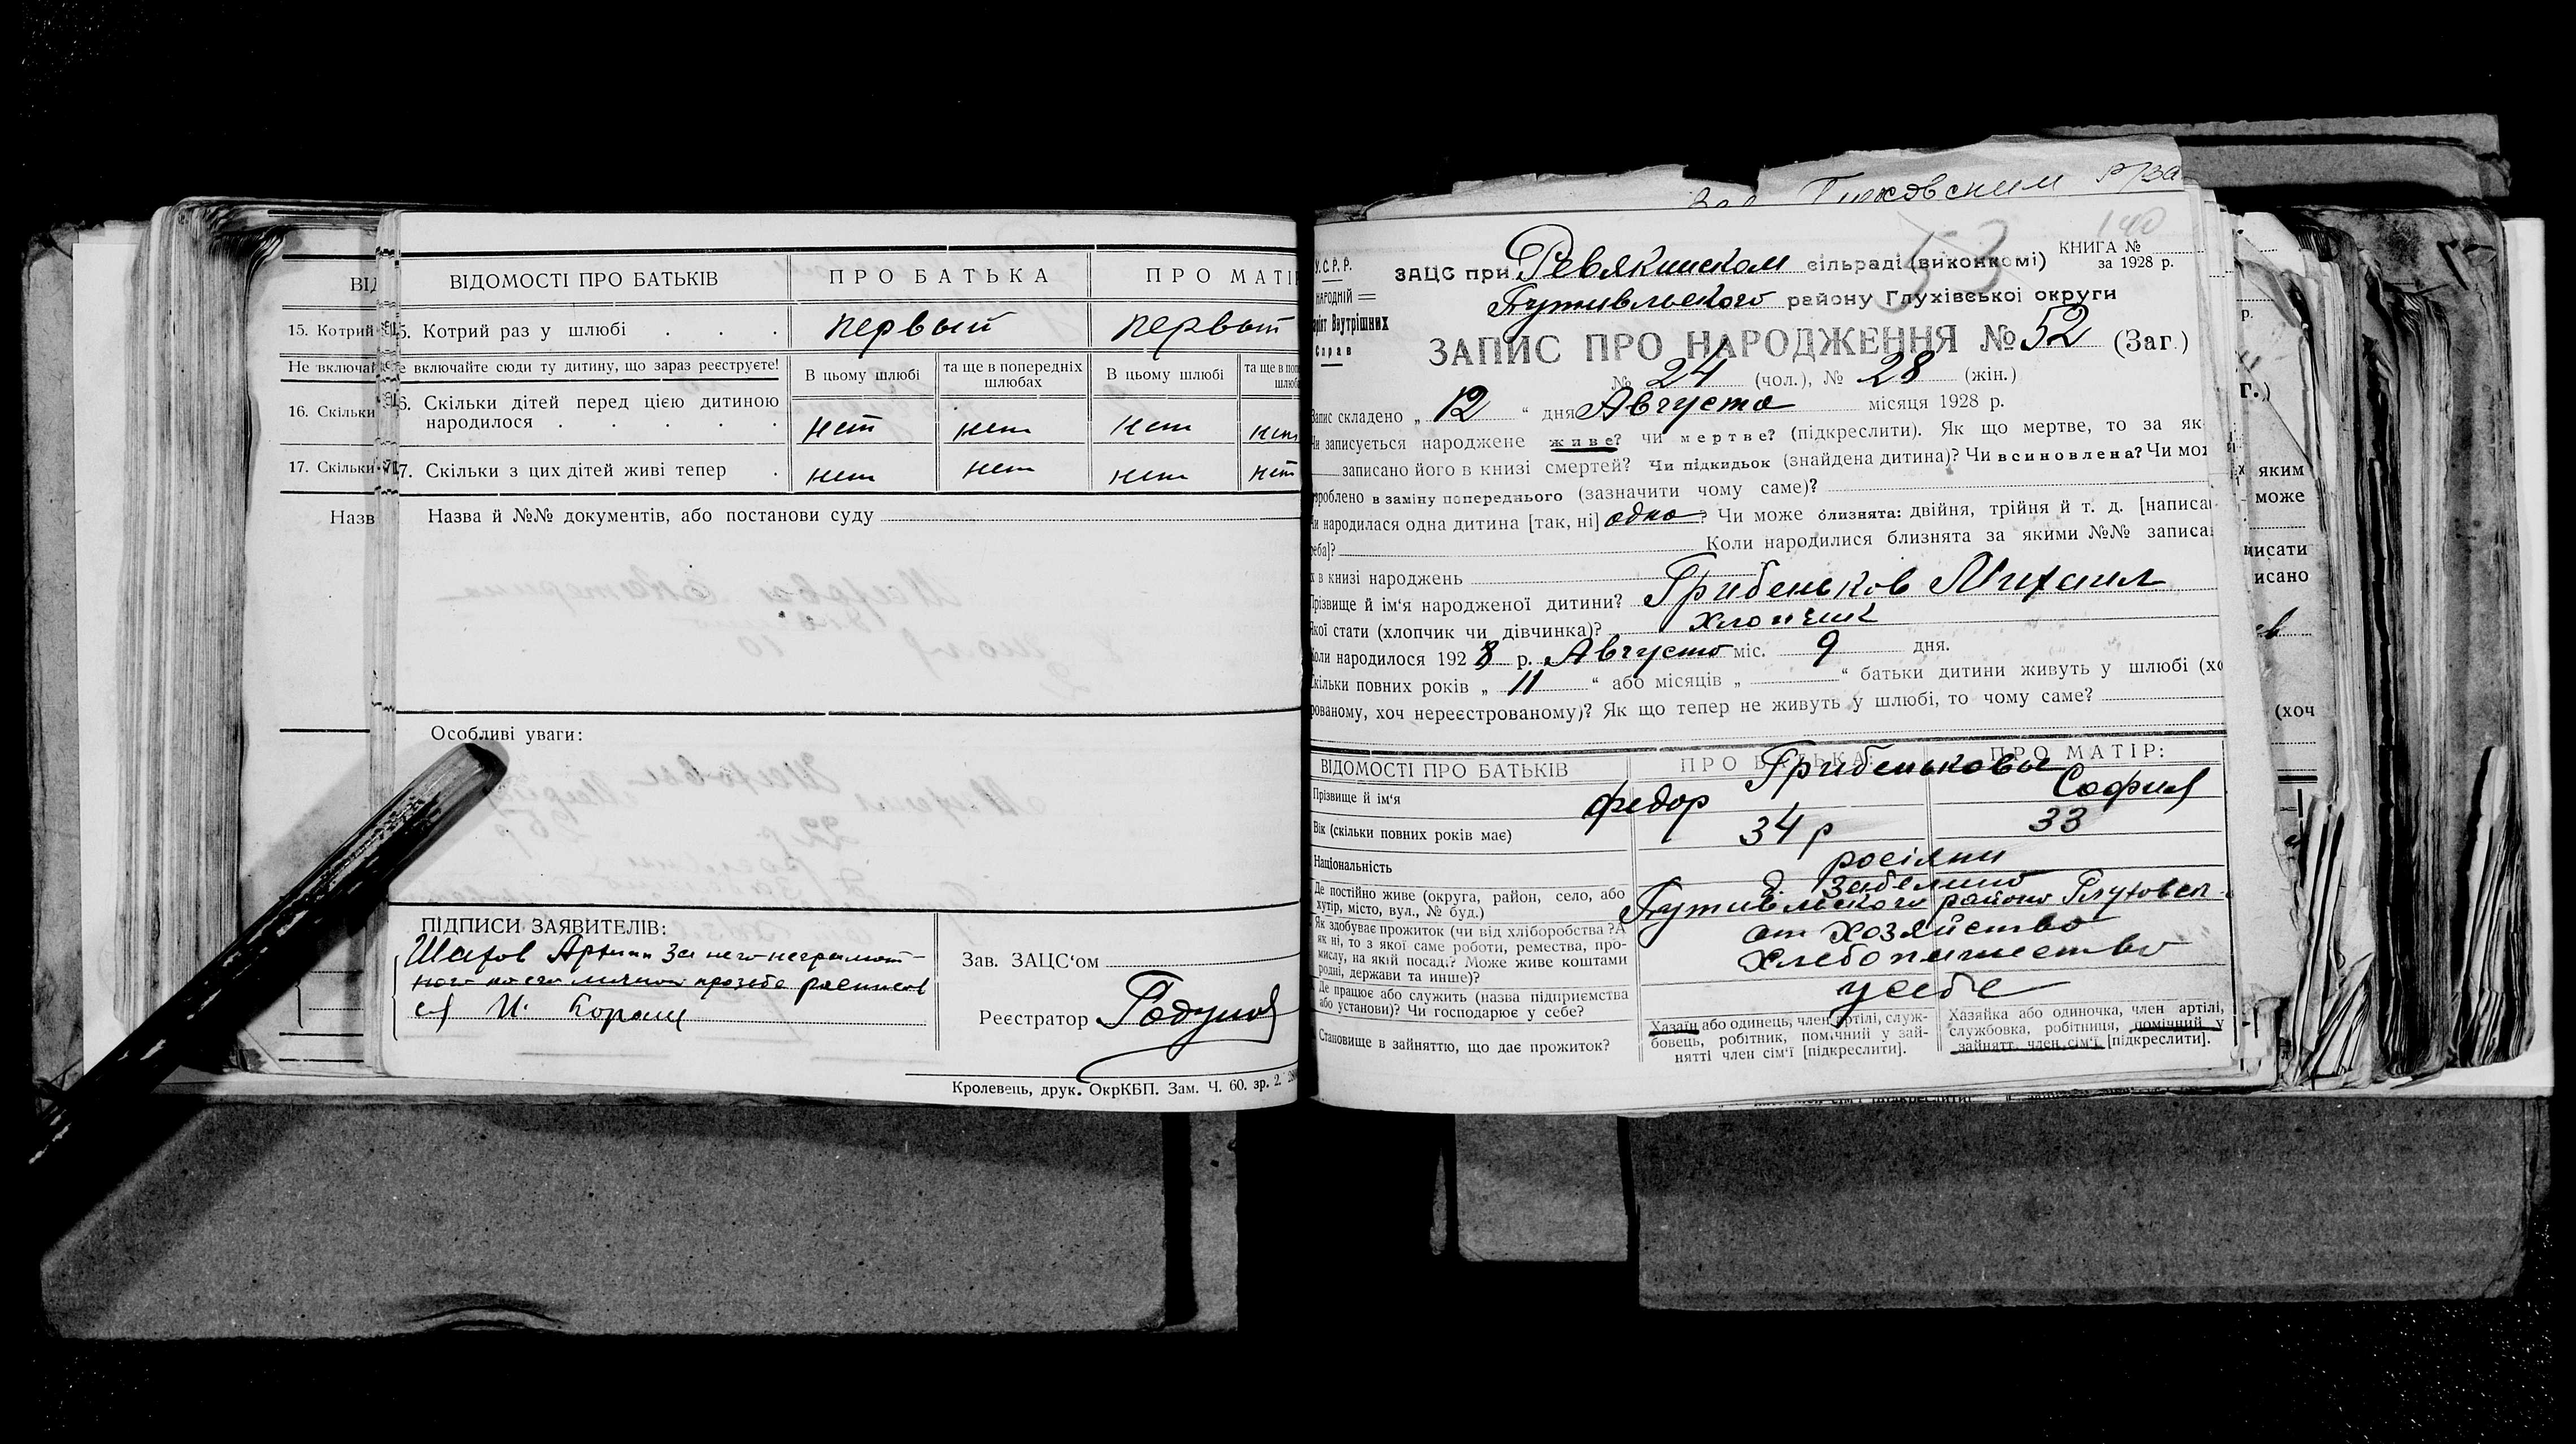 ВІДОМОСТІ ПРО БАТЬКІВ
ПРО БАТЬКА
ПРО МАТІ
15. Котрий
5. Котрий раз у шлюбі . . .
первый
первый
Не включа
е включайте сюди ту дитину, що зараз реєструєте!
В цьому шлюбі
та ще в попередніх шлюбах
В цьому шлюбі
16. Скільки
6. Скільки дітей перед цією дитиною
народилося . . . . .
нет нет нет нет
17. Скільки
7. Скільки з цих дітей живі тепер .
нет нет нет нет
Назв
Назва й №№ документів, або постанови суду
Особливі уваги:
ПІДПИСИ ЗАЯВИТЕЛІВ:
Шахов за него неграмот-
ного по его личной прозбе росписов
ся И.
Зав. ЗАЦС‘ом
Реєстратор
Кролевець, друк. ОкрКБП. Зам. Ч. 60. зр. 2.
У.С.Р.Р.
НАРОДНІЙ
Внутрішних
Справ
53
140
КНИГА №
за 1928 р.
ЗАЦС при Ревякинском сільраді (виконкомі)
Путивльского району Глухівської округи
ЗАПИС ПРО НАРОДЖЕННЯ № 52 (Заг.)
№ 24 (чол.), № 28 (жін.)
Запис складено „ 12 “ дня Августа місяця 1928 р.
Чи записується народжене живе? чи мертве? (підкреслити). Як що мертве, то за як
записано його в книзі смертей? Чи підкидьок (знайдена дитина)? Чи всиновлена? Чи мож
зроблено в заміну попереднього (зазначити чому саме)?
Чи народилася одна дитина [так, ні] одно? Чи може близнята: двійня, трійня й т. д. [написа
треба]? Коли народилися близнята за якими №№ записа
їх в книзі народжень
Прізвище й ім‘я народженої дитини? Грибеньков Михаил
Якої стати (хлопчик чи дівчинка)? хлопчик
Коли народилося 1928 р. Августа міс. 9 дня.
Скільки повних років „ 11 “ або місяців „ “ батьки дитини живуть у шлюбі (хо
рованому, хоч нереєстрованому)? Як що тепер не живуть у шлюбі, то чому саме?
ВІДОМОСТІ ПРО БАТЬКІВ
ПРО БАТЬКА:
ПРО МАТІР:
Грибеньковы
Прізвище й ім‘я
Федор
София
Вік (скільки повних років має)
34 р
33
Національність
росіяни
Де постійно живе (округа, район, село, або
хутір, місто, вул., № буд.)
д. Забелино
Путивльского района
Як здобуває прожиток (чи від хліборобства ?А
як ні, то з якої саме роботи, ремества, про-
мислу, на якій посаді? Може живе коштами
родні, держави та инше)?
от хозяйство
хлебопашество
Де працює або служить (назва підприємства
або установи)? Чи господарює у себе?
у себе
Становище в зайняттю, що дає прожиток?
Хазаїн або одинець, член артілі, служ-
бовець, робітник, помічний у зай-
нятті член сім‘ї [підкреслити].
Хазяйка або одиночка, член артілі,
службовка, робітниця, помічний у
зайнятт. член сім‘ї [підкреслити].
яким
може
писати
исано
(хоч